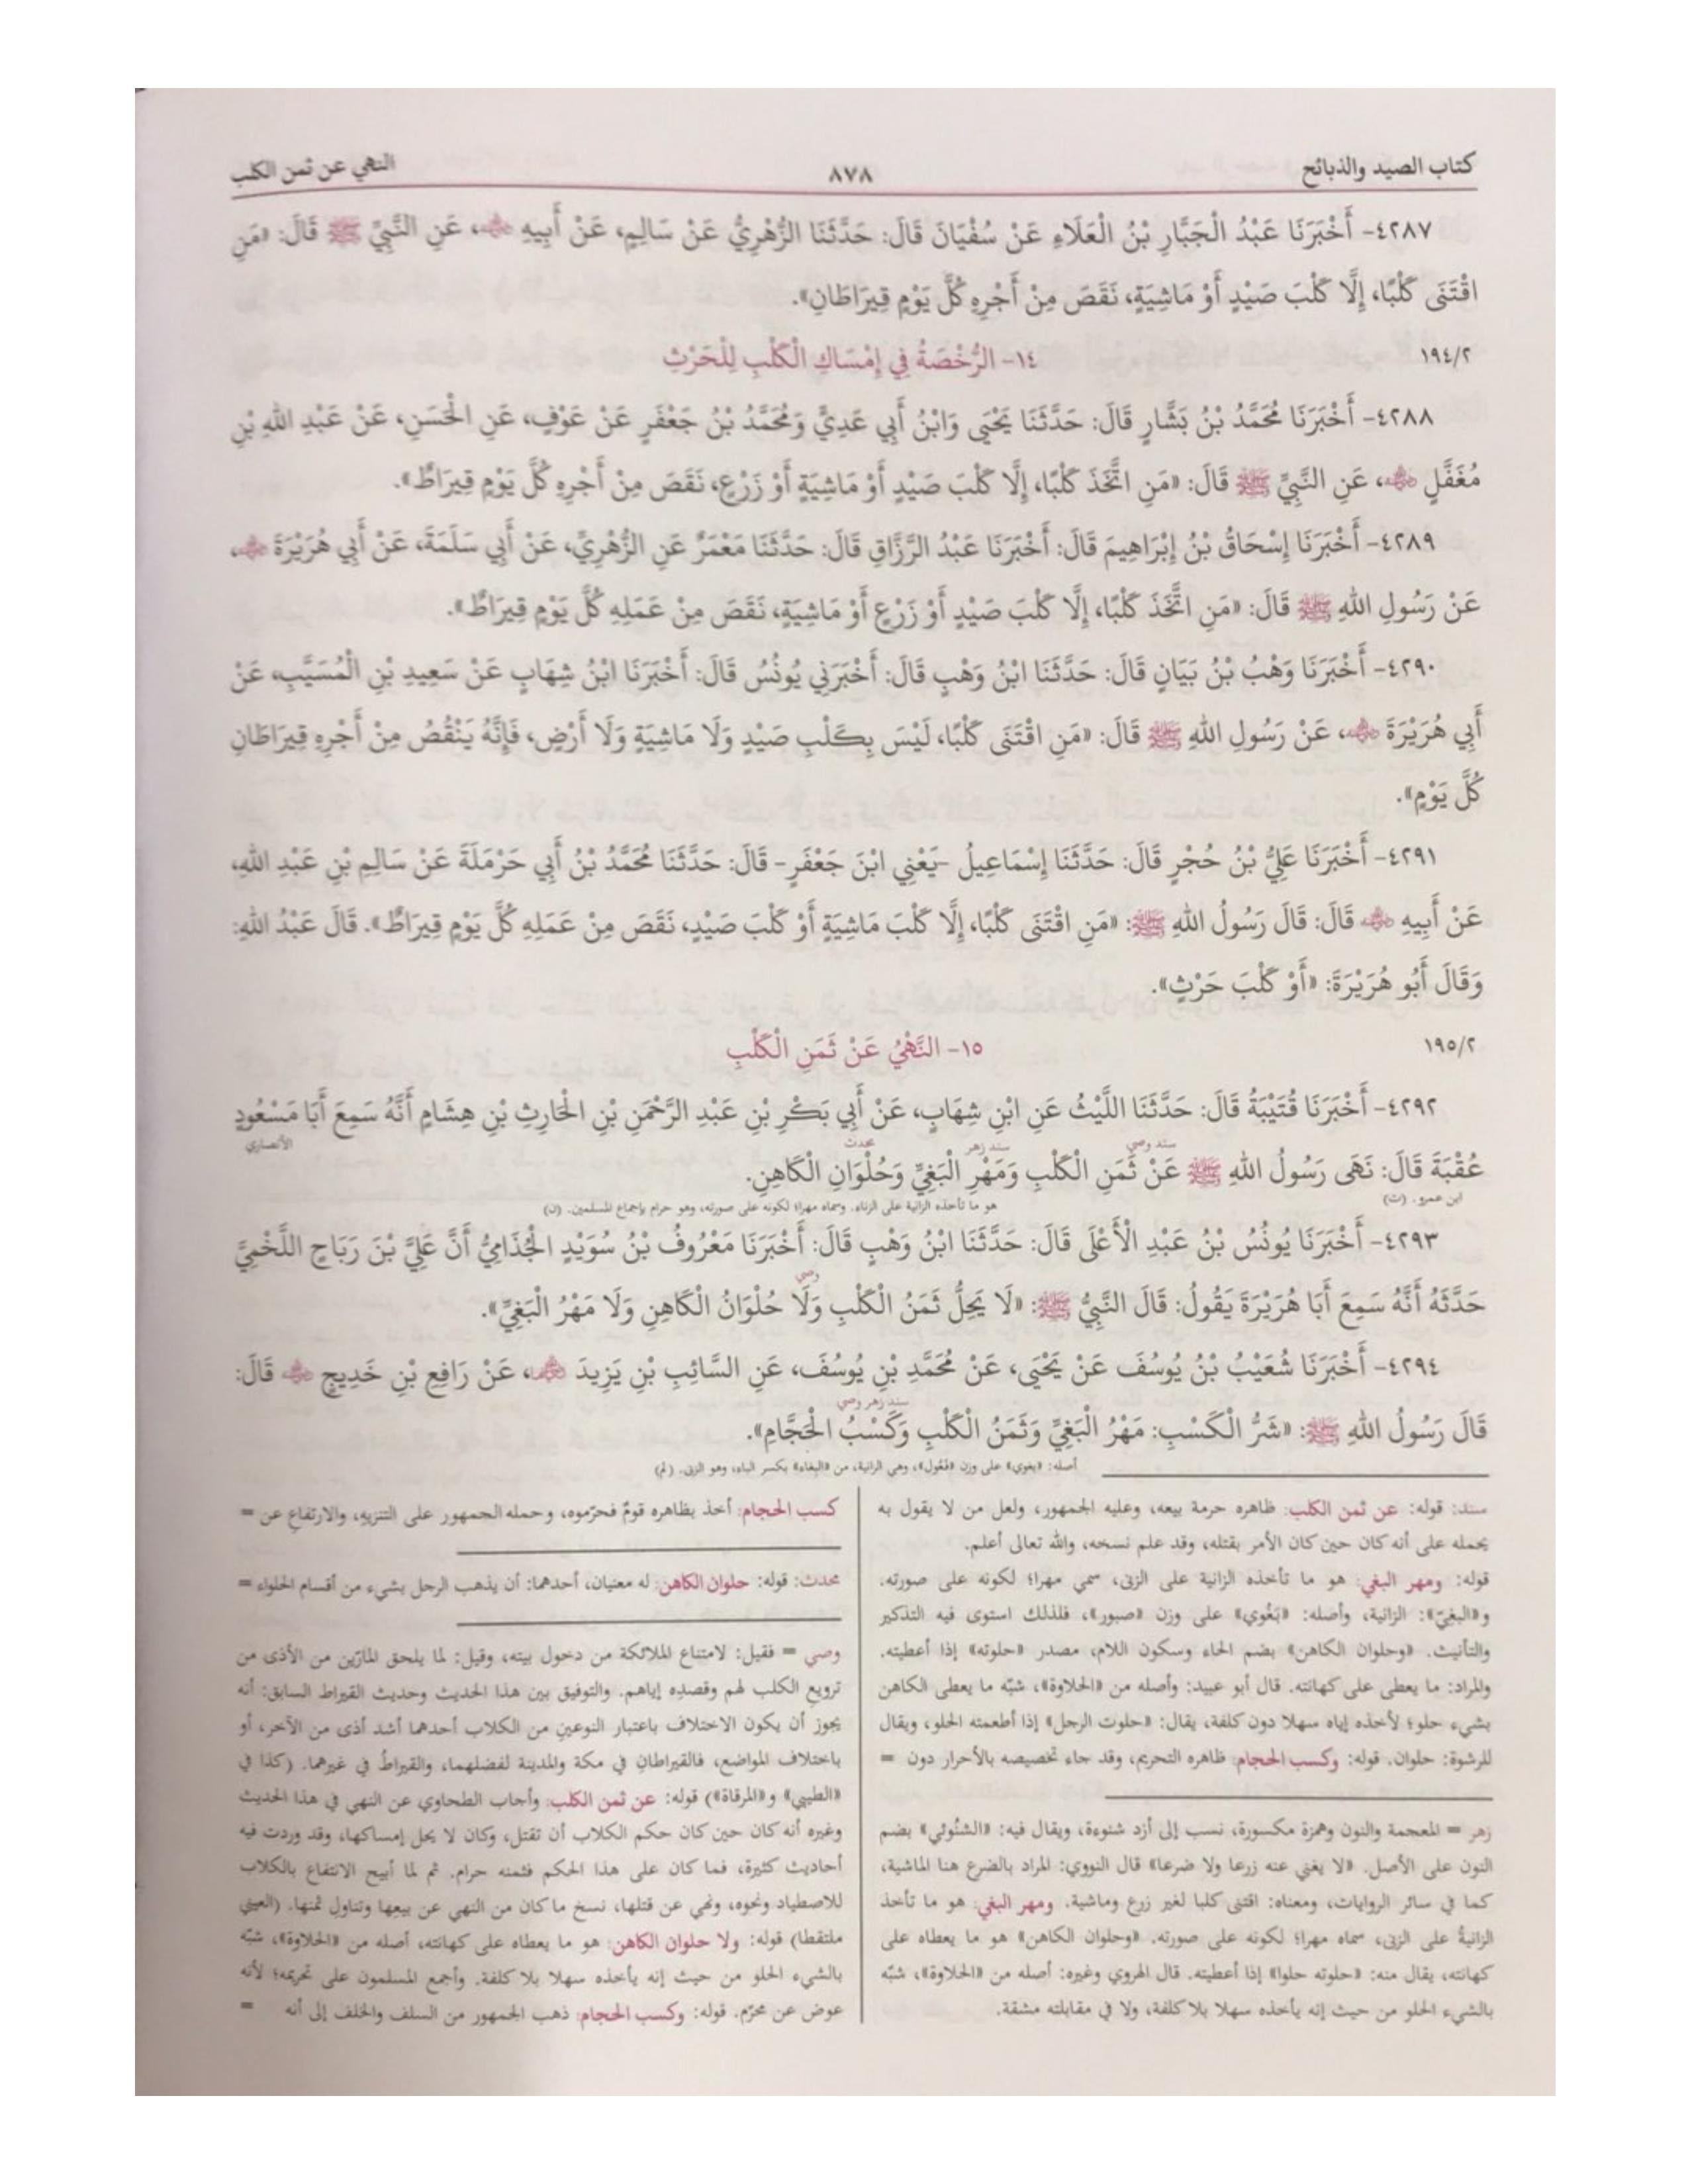 كتاب الصيد والذبائح ٨٧٨ النهي عن ثمن الكلب
٤٢٨٧- أَخْبَرَنَا عَبْدُ الْجَبَّارِ بْنُ الْعَلَاءِ عَنْ سُفْيَانَ قَالَ: حَدَّثَنَا الزُّهْرِيُّ عَنْ سَالِمٍ، عَنْ أَبِيهِ ﵁، عَنِ النَّبِيِّ ﷺ قَالَ: «مَنِ
اقْتَنَى كَلْبًا، إِلَّا كَلْبَ صَيْدٍ أَوْ مَاشِيَةٍ، نَقَصَ مِنْ أَجْرِهِ كُلَّ يَوْمٍ قِيرَاطَانِ».
١٩٤/٢ ١٤- الرُّخْصَةُ فِي إِمْسَاكِ الْكَلْبِ لِلْحَرْثِ
٤٢٨٨- أَخْبَرَنَا مُحَمَّدُ بْنُ بَشَّارٍ قَالَ: حَدَّثَنَا يَحْيَى وَابْنُ أَبِي عَدِيٍّ وَمُحَمَّدُ بْنُ جَعْفَرٍ عَنْ عَوْفٍ، عَنِ الْحَسَنِ، عَنْ عَبْدِ اللهِ بْنِ
مُغَفَّلٍ ﵁، عَنِ النَّبِيِّ ﷺ قَالَ: «مَنِ اتَّخَذَ كَلْبًا، إِلَّا كَلْبَ صَيْدٍ أَوْ مَاشِيَةٍ أَوْ زَرْعٍ، نَقَصَ مِنْ أَجْرِهِ كُلَّ يَوْمٍ قِيرَاطٌ».
٤٢٨٩- أَخْبَرَنَا إِسْحَاقُ بْنُ إِبْرَاهِيمَ قَالَ: أَخْبَرَنَا عَبْدُ الرَّزَّاقِ قَالَ: حَدَّثَنَا مَعْمَرٌ عَنِ الزُّهْرِيِّ، عَنْ أَبِي سَلَمَةَ، عَنْ أَبِي هُرَيْرَةَ ﵁،
عَنْ رَسُولِ اللهِ ﷺ قَالَ: «مَنِ اتَّخَذَ كَلْبًا، إِلَّا كَلْبَ صَيْدٍ أَوْ زَرْعٍ أَوْ مَاشِيَةٍ، نَقَصَ مِنْ عَمَلِهِ كُلَّ يَوْمٍ قِيرَاطٌ».
٤٢٩٠- أَخْبَرَنَا وَهْبُ بْنُ بَيَانٍ قَالَ: حَدَّثَنَا ابْنُ وَهْبٍ قَالَ: أَخْبَرَنِي يُونُسُ قَالَ: أَخْبَرَنَا ابْنُ شِهَابٍ عَنْ سَعِيدِ بْنِ الْمُسَيَّبِ، عَنْ
أَبِي هُرَيْرَةَ ﵁، عَنْ رَسُولِ اللهِ ﷺ قَالَ: «مَنِ اقْتَنَى كَلْبًا، لَيْسَ بِكَلْبِ صَيْدٍ وَلَا مَاشِيَةٍ وَلَا أَرْضٍ، فَإِنَّهُ يَنْقُصُ مِنْ أَجْرِهِ قِيرَاطَانِ
كُلَّ يَوْمٍ».
٤٢٩١- أَخْبَرَنَا عَلِيُّ بْنُ حُجْرٍ قَالَ: حَدَّثَنَا إِسْمَاعِيلُ -يَعْنِي ابْنَ جَعْفَرٍ- قَالَ: حَدَّثَنَا مُحَمَّدُ بْنُ أَبِي حَرْمَلَةَ عَنْ سَالِمِ بْنِ عَبْدِ اللهِ،
عَنْ أَبِيهِ ﵁ قَالَ: قَالَ رَسُولُ اللهِ ﷺ: «مَنِ اقْتَنَى كَلْبًا، إِلَّا كَلْبَ مَاشِيَةٍ أَوْ كَلْبَ صَيْدٍ، نَقَصَ مِنْ عَمَلِهِ كُلَّ يَوْمٍ قِيرَاطٌ». قَالَ عَبْدُ اللهِ:
وَقَالَ أَبُو هُرَيْرَةَ: «أَوْ كَلْبَ حَرْثٍ».
١٩٥/٢ ١٥- النَّهْيُ عَنْ ثَمَنِ الْكَلْبِ
٤٢٩٢- أَخْبَرَنَا قُتَيْبَةُ قَالَ: حَدَّثَنَا اللَّيْثُ عَنِ ابْنِ شِهَابٍ، عَنْ أَبِي بَكْرِ بْنِ عَبْدِ الرَّحْمَنِ بْنِ الْحَارِثِ بْنِ هِشَامٍ أَنَّهُ سَمِعَ أَبَا مَسْعُودٍ
سند وصي سند زهر محدث الأنصاري
عُقْبَةَ قَالَ: نَهَى رَسُولُ اللهِ ﷺ عَنْ ثَمَنِ الْكَلْبِ وَمَهْرِ الْبَغِيِّ وَحُلْوَانِ الْكَاهِنِ.
ابن عمرو. (ت) هو ما تأخذه الزانية على الزناء. وسماه مهرا؛ لكونه على صورته، وهو حرام بإجماع المسلمين. (ن)
٤٢٩٣- أَخْبَرَنَا يُونُسُ بْنُ عَبْدِ الْأَعْلَى قَالَ: حَدَّثَنَا ابْنُ وَهْبٍ قَالَ: أَخْبَرَنَا مَعْرُوفُ بْنُ سُوَيْدٍ الْجُذَامِيُّ أَنَّ عَلِيَّ بْنَ رَبَاحٍ اللَّخْمِيَّ
وصي
حَدَّثَهُ أَنَّهُ سَمِعَ أَبَا هُرَيْرَةَ يَقُولُ: قَالَ النَّبِيُّ ﷺ: «لَا يَحِلُّ ثَمَنُ الْكَلْبِ وَلَا حُلْوَانُ الْكَاهِنِ وَلَا مَهْرُ الْبَغِيِّ».
٤٢٩٤- أَخْبَرَنَا شُعَيْبُ بْنُ يُوسُفَ عَنْ يَحْيَى، عَنْ مُحَمَّدِ بْنِ يُوسُفَ، عَنِ السَّائِبِ بْنِ يَزِيدَ ﵄، عَنْ رَافِعِ بْنِ خَدِيجٍ ﵁ قَالَ:
سند زهر وصي
قَالَ رَسُولُ اللهِ ﷺ: «شَرُّ الْكَسْبِ: مَهْرُ الْبَغِيِّ وَثَمَنُ الْكَلْبِ وَكَسْبُ الْحَجَّامِ».
أصله: «بغوي» على وزن «فَعُول»، وهي الزانية، من «البغاء» بكسر الباء، وهو الزنى.
سند: قوله: عن ثمن الكلب: ظاهره حرمة بيعه، وعليه الجمهور، ولعل من لا يقول به
يحمله على أنه كان حين كان الأمر بقتله، وقد علم نسخه، والله تعالى أعلم.
قوله: ومهر البغي: هو ما تأخذه الزانية على الزنى، سمي مهرا؛ لكونه على صورته.
و«البغيّ»: الزانية، وأصله: «بَغُوي» على وزن «صبور»، فلذلك استوى فيه التذكير
والتأنيث. «وحلوان الكاهن» بضم الحاء وسكون اللام، مصدر «حلوته» إذا أعطيته.
والمراد: ما يعطى على كهانته. قال أبو عبيد: وأصله من «الحلاوة»، شبّه ما يعطى الكاهن
بشيء حلو؛ لأخذه إياه سهلا دون كلفة، يقال: «حلوت الرجل» إذا أطعمته الحلو، ويقال
للرشوة: حلوان. قوله: وكسب الحجام: ظاهره التحريم، وقد جاء تخصيصه بالأحرار دون =
زهر = المعجمة والنون وهمزة مكسورة، نسب إلى أزد شنوءة، ويقال فيه: «الشنُوئي» بضم
النون على الأصل. «لا يغني عنه زرعا ولا ضرعا» قال النووي: المراد بالضرع هنا الماشية،
كما في سائر الروايات، ومعناه: اقتنى كلبا لغير زرع وماشية. ومهر البغي: هو ما تأخذ
الزانيةُ على الزنى، سماه مهرا؛ لكونه على صورته. «وحلوان الكاهن» هو ما يعطاه على
كهانته، يقال منه: «حلوته حلوا» إذا أعطيته. قال الهروي وغيره: أصله من «الحلاوة»، شبّه
بالشيء الحلو من حيث إنه يأخذه سهلا بلا كلفة، ولا في مقابلته مشقة.
كسب الحجام: أخذ بظاهره قومٌ فحرّموه، وحمله الجمهور على التنزيه، والارتفاع عن =
محدث: قوله: حلوان الكاهن: له معنيان، أحدهما: أن يذهب الرجل بشيء من أقسام الحلواء =
وصي = فقيل: لامتناع الملائكة من دخول بيته، وقيل: لما يلحق المارّين من الأذى من
ترويع الكلب لهم وقصدِه إياهم. والتوفيق بين هذا الحديث وحديث القيراط السابق: أنه
يجوز أن يكون الاختلاف باعتبار النوعين من الكلاب أحدهما أشد أذى من الآخر، أو
باختلاف المواضع، فالقيراطان في مكة والمدينة لفضلهما، والقيراطُ في غيرهما. (كذا في
«الطيبي» و«المرقاة») قوله: عن ثمن الكلب: وأجاب الطحاوي عن النهي في هذا الحديث
وغيره أنه كان حين كان حكم الكلاب أن تقتل، وكان لا يحل إمساكها، وقد وردت فيه
أحاديث كثيرة، فما كان على هذا الحكم فثمنه حرام. ثم لما أبيح الانتفاع بالكلاب
للاصطياد ونحوه، ونهي عن قتلها، نسخ ما كان من النهي عن بيعها وتناول ثمنها. (العيني
ملتقطا) قوله: ولا حلوان الكاهن: هو ما يعطاه على كهانته، أصله من «الحلاوة»، شبّه
بالشيء الحلو من حيث إنه يأخذه سهلا بلا كلفة. وأجمع المسلمون على تحريمه؛ لأنه
عوض عن محرّم. قوله: وكسب الحجام: ذهب الجمهور من السلف والخلف إلى أنه =